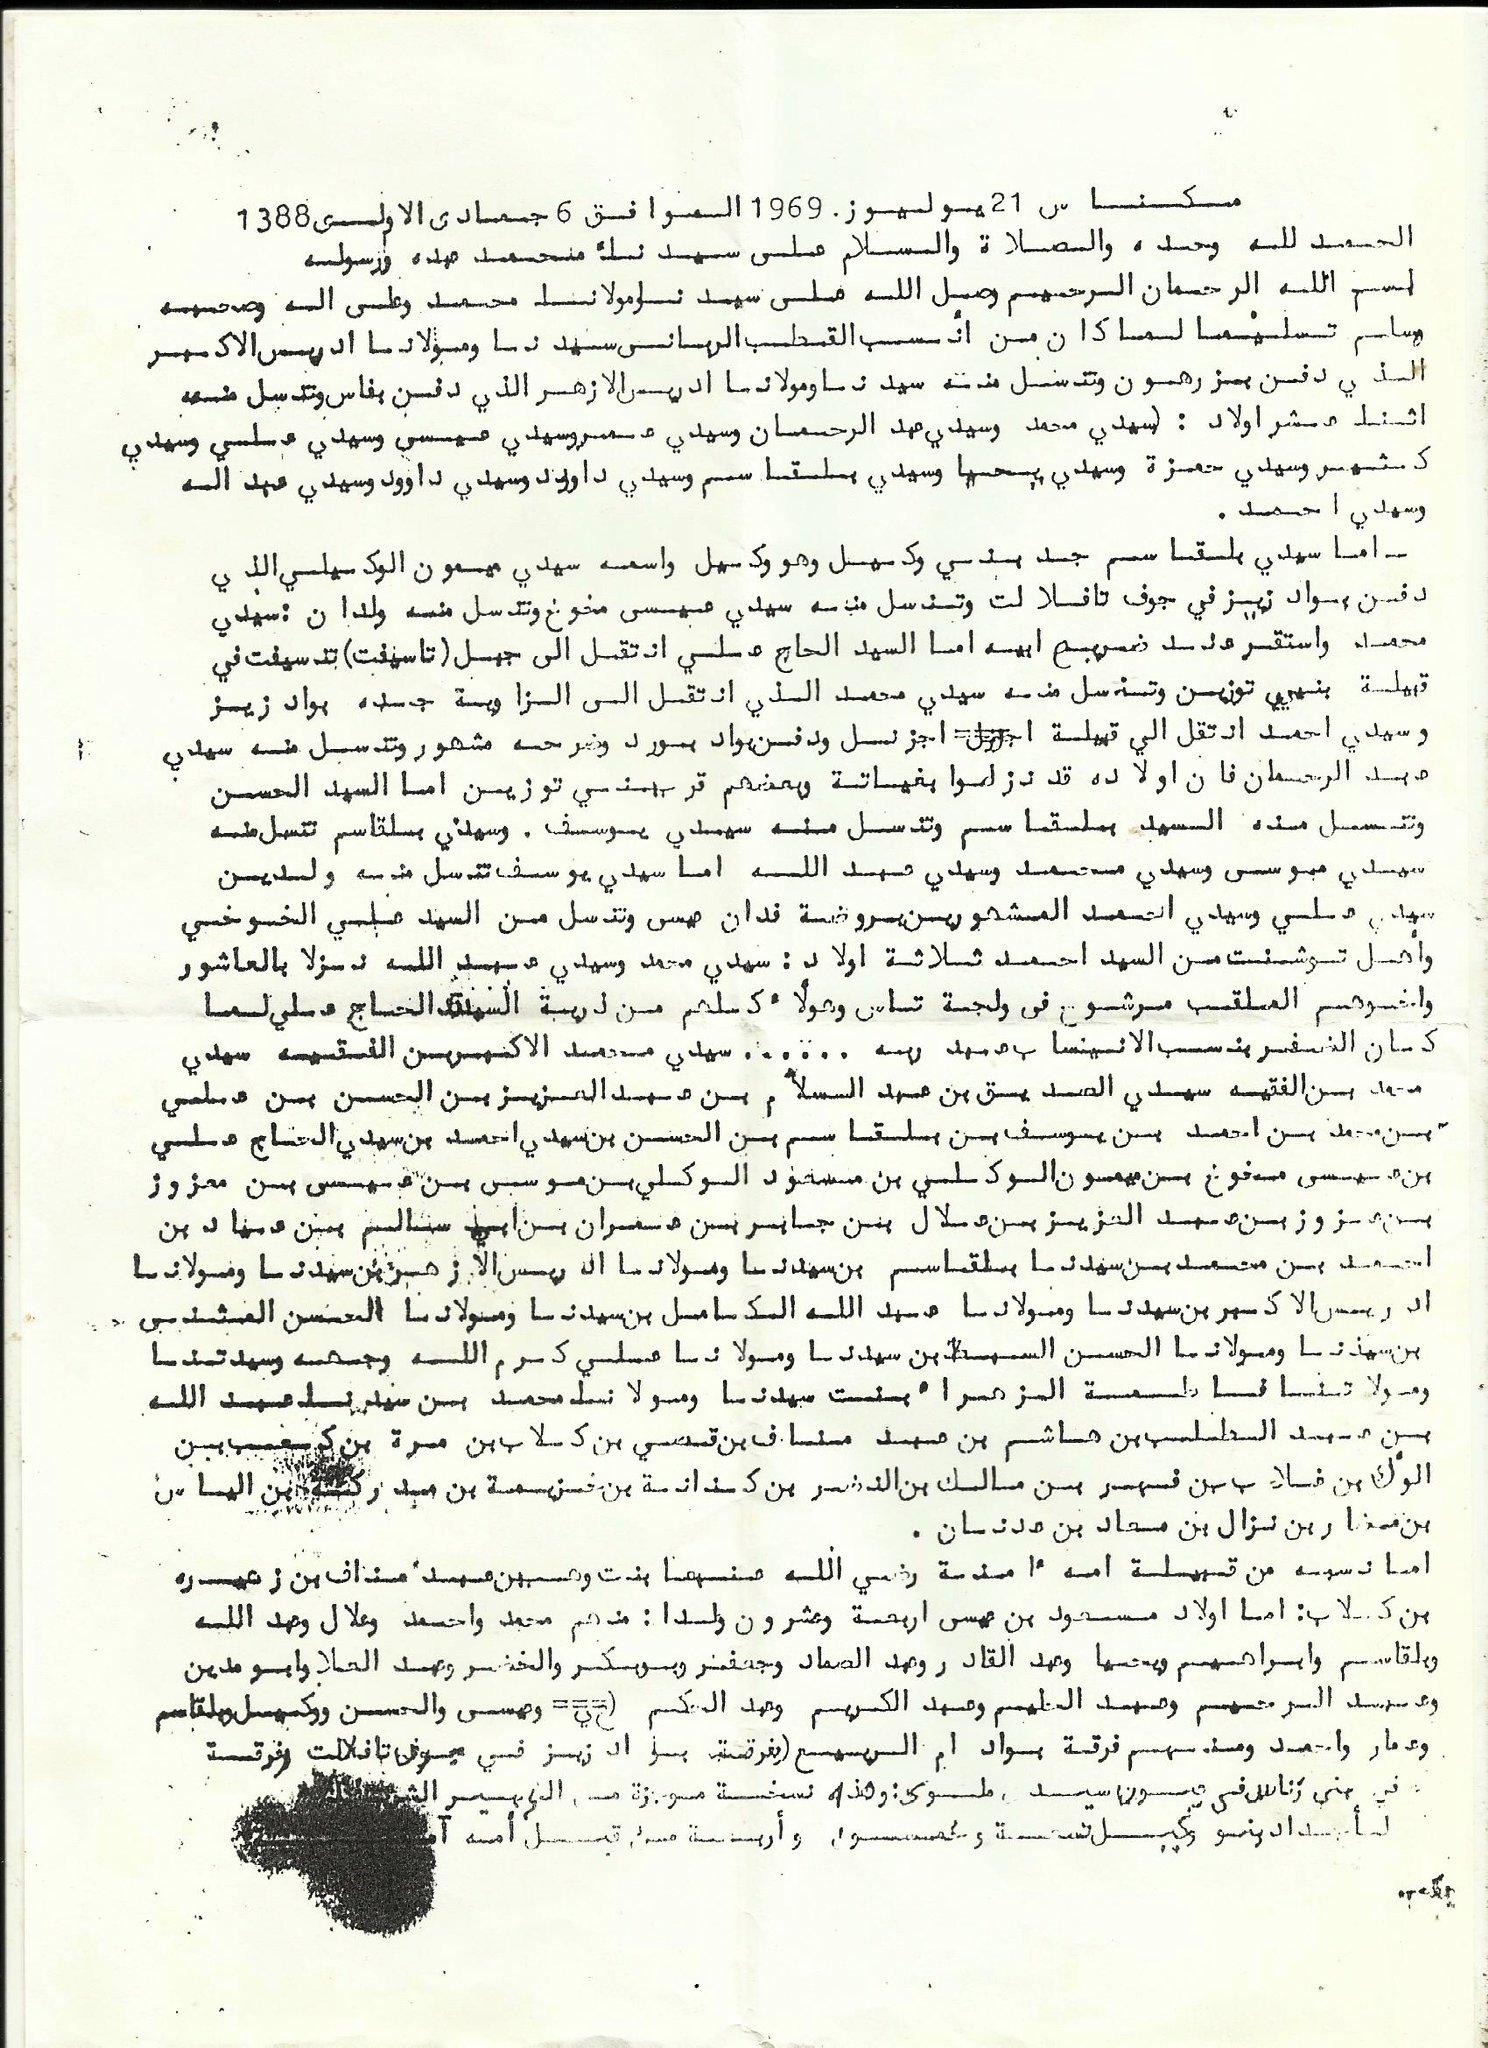 مكناس 21 يوليوز. 1969 الموافق 6 جمادى الاولى 1388
الحمد لله وحده والصلاة والسلام على سيدنا محمد عبده ورسوله
بسم الله الرحمان الرحيم وصل الله على سيدنا ومولانا محمد وعلى اله وصحبه
وسلم تسليما لما كان من انسب القطب الرباني سيدنا ومولانا ادريس الاكبر
الذي دفن بزرهون وتنسل منه سيدنا ومولانا ادريس الازهر الذي دفن بفاس وتنسل منه
اثنا عشر اولاد : (سيدي محمد وسيدي عبد الرحمان وسيدي عمر وسيدي عيسى وسيدي علي وسيدي
كثير وسيدي حمزة وسيدي يحيا وسيدي بلقاسم وسيدي داوود وسيدي داوود وسيدي عبد الله
وسيدي احمد .
ـ اما سيدي بلقاسم جد بني وكيل وهو وكيل واسمه سيدي ميمون الوكيلي الذي
دفن بواد زيز في جوف تافلالت وتنسل منه سيدي عيسى مخوخ وتنسل منه ولدان : سيدي
محمد واستقر عند ضريح ابيه اما السيد الحاج علي انتقل الى جبل (تاسيفت) تنسيفت في
قبيلة بنيي توزين وتنسل منه سيدي محمد الذي انتقل الى الزاوية جده بواد زيز
وسيدي احمد انتقل الي قبيلة اجزنل ودفن بواد بورد وضرحه مشهور وتنسل منه سيدي
عبد الرحمان فان اولاده قد نزلوا بغياتة وبعضهم قرب بني توزين اما السيد الحسن
وتنسل منه السيد بلقاسم وتنسل منه سيدي يوسف . وسيدي بلقاسم تنسل منه
سيدي موسى وسيدي محمد وسيدي عبد الله اما سيدي يوسف تنسل منه ولدين
سيدي علي وسيدي احمد المشهورين بروضة فدان عيسى وتنسل من السيد علي الخوخي
وأهل توشنت من السيد احمد ثلاثة اولاد : سيدي محمد وسيدي عبد الله نزلا بالعاشور
واخوهم الملقب مرشوح فى ولجة تاس وهولاء كلهم من ذرية السيد الحاج علي لما
كان الضفر بنسب الانيسا ب عبد ربه ...... سيدي محمد الاكبر بن الفقيه سيدي
محمد بن الفقيه سيدي الصديق بن عبد السلام بن عبد العزيز بن الحسن بن علي
بن محمد بن احمد بن يوسف بن بلقاسم بن الحسن بن سيدي احمد بن سيدي الحاج علي
بن عيسى مخوخ بن ميمون الوكلي بن مسعود الوكلي بن موسى بن عيسى بن معزوز
بن عزوز بن عبد العزيز بن علال بن جابر بن عمران بن ابي سالم بن عياد بن
احمد بن محمد بن سيدنا بلقاسم بن سيدنا ومولانا ادريس الازهر بن سيدنا ومولانا
ادريس الاكبر بن سيدنا ومولانا عبد الله الكامل بن سيدنا ومولانا الحسن المثنى
بن سيدنا ومولانا الحسن السبط بن سيدنا ومولانا علي كرم الله وجهه وسيدتنا
ومولاتنا فاطمة الزهراء بنت سيدنا ومولانا محمد بن سيدنا عبد الله
بن عبد المطلب بن هاشم بن عبد مناف بن قصي بن كلاب بن مرة بن كعب بن
الوك بن غلاب بن فهر بن مالك بن النضر بن كنانة بن خزيمة بن مدركة بن الياس
بن مضار بن نزال بن معاد بن عدنان .
اما نسبه من قبيلة امه ءامنة رضي الله عنها بنت وهب بن عبد مناف بن زهيره
بن كلاب: اما اولاد مسعود بن عيسى اربعة وعشرون ولدا : منهم محمد واحمد وعلال وعبد الله
وبلقاسم وابراهيم ويحيا وعبد القادر وعبد الصماد وجعفر وبوبكر والخضر وعبد العلا وابو مدين
وعبد الرحيم وعبد العظيم وعبد الكريم وعبد الحكم وعيسى والحسن ووكيل وبلقاسم
وعمار واحمد ومنهم فرقة بواد ام الربيع (بفرقة بواد زيز في جوف تافلالت وفرقة
في بني زناس في عيون سيد ملوى : وهذه نسخة موجزة من
وكيل تسعة وخمسون وأربعة قبل أمه